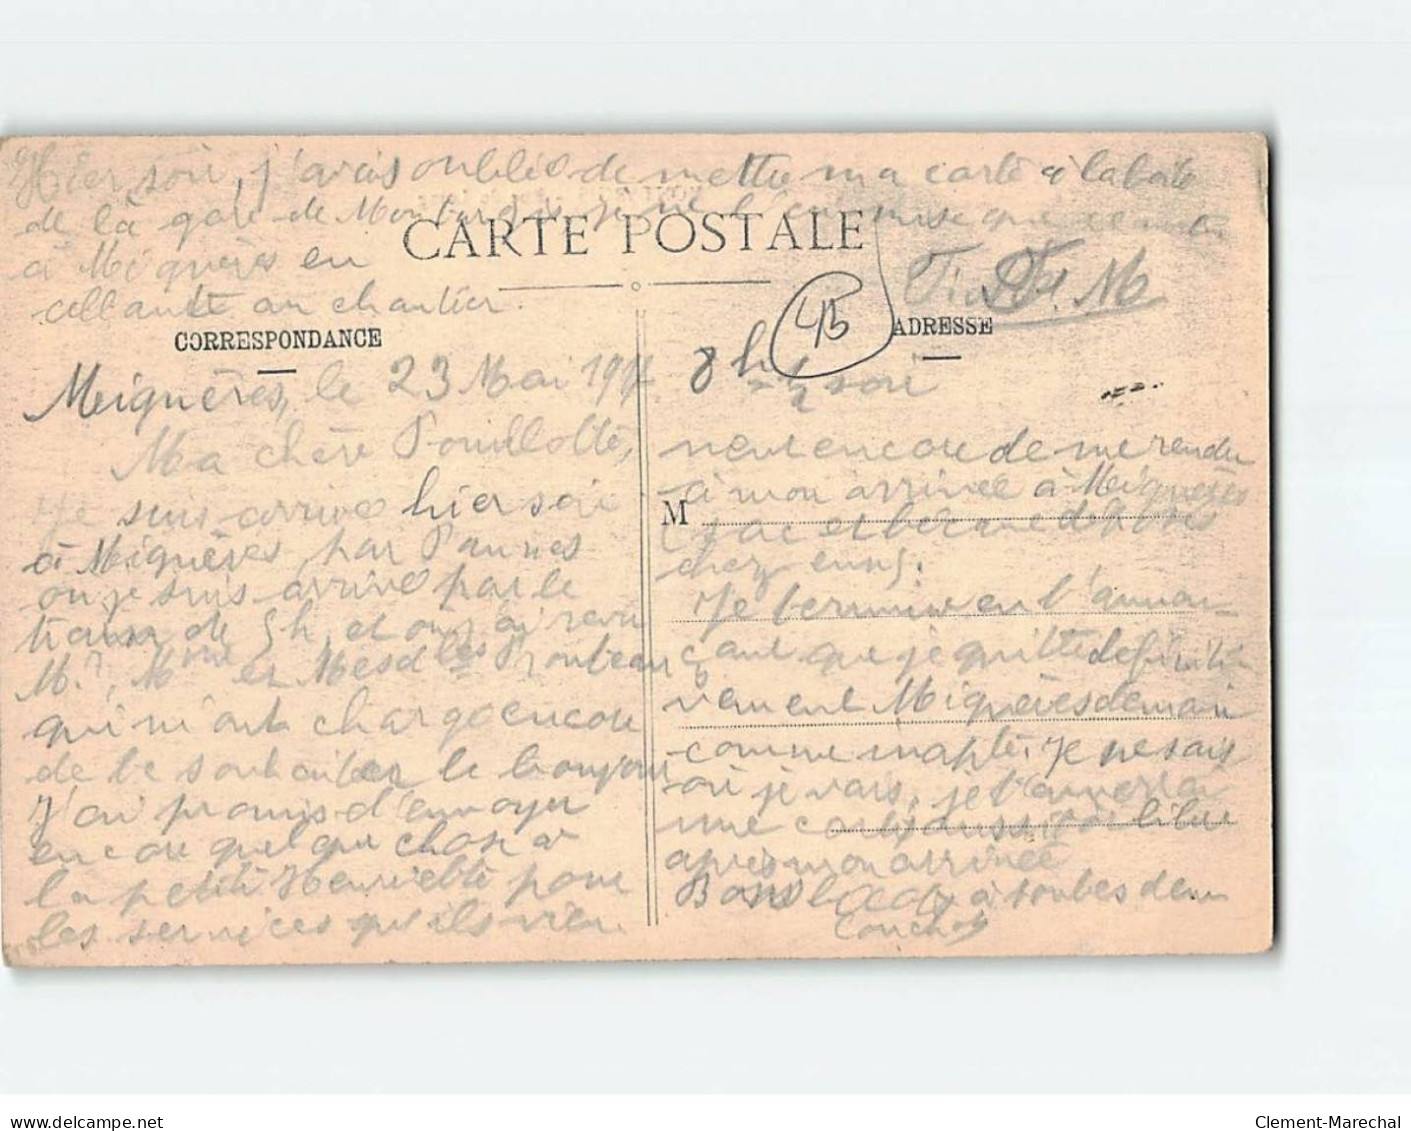 Hier soir, j'avais oublié de mettre ma carte à la boîte
de la gare de je ne l'ai mise que ce matin
à Mignères en
allant au chantier.
CARTE POSTALE
F. M.
45
CORRESPONDANCE
ADRESSE
Mignères, le 23 Mai 191 8 h 1/2 soir
Ma chère Pouillotte,
Je suis arrivé hier soir
à Mignères par Pannes
où je suis arrivé par le
train de 5h, et où j'ai revu
Mr, Mme et Mesdlles
qui m'ont chargé encore
de te souhaiter le bonjour
J'ai promis d'envoyer
encore quelque chose à
la petite Henriette pour
les services qu'ils vien
nent encore de me rendre
à mon arrivée à Mignères
M
chez eux.
Je termine en t'annon
çant que je quitte définiti
vement Mignères demain
comme Je ne sais
où je vais, je t'enverrai
une carte aussitôt
après mon arrivée
Bons à toutes deux